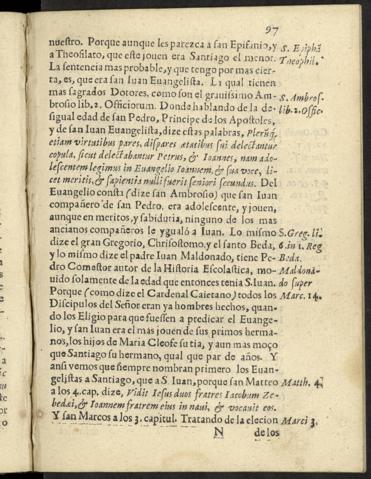 97
nuestro. Porque aunque les parezca a san Epifanio, y
a Theofilato, que este jouen era Santiago el menor.
La sentencia mas probable, y que tengo por mas cier-
ta, es, que era san Iuan Euangelista. La qual tienen
mas sagrados Dotores, como son el grauissimo Am-
brosio lib. 2. Officiorum. Donde hablando de la de-
sigual edad de san Pedro, Principe de los Apostoles,
y de san Iuan Euangelista, dize estas palabras, Plerūq́;
etiam virtutibus pares, dispares ætatibus sui delectantur
copula, sicut delectabantur Petrus, & Ioannes, nam ado-
lescentem legimus in Euangelio Ioannem, & sua voce, li-
cet meritis, & sapientia nulli fuerit seniori secundus. Del
Euangelio consta (dize san Ambrosio) que san Iuan
compañero de san Pedro, era adolescente, y jouen,
aunque en meritos, y sabiduria, ninguno de los mas
ancianos compañeros le ygualò a Iuan. Lo mismo
dize el gran Gregorio, Chrisostomo, y el santo Beda,
y lo mismo dize el padre Iuan Maldonado, tiene Pe-
dro Comestor autor de la Historia Escolastica, mo-
uido solamente de la edad que entonces tenia S. Iuan.
Porque (como dize el Cardenal Caietano) todos los
Discipulos del Señor eran ya hombres hechos, quan-
do los Eligio para que fuessen a predicar el Euange-
lio, y san Iuan era el mas jouen de sus primos herma-
nos, los hijos de Maria Cleofe su tia, y aun mas moço
que Santiago su hermano, qual que par de años. Y
ansi vemos que siempre nombran primero los Euan-
gelistas a Santiago, que a S. Iuan, porque san Matteo
a los 4. cap. dize, Vidit Iesus duos fratres Iacobum Ze-
bedæi, & Ioannem fratrem eius in naui, & vocauit eos.
Y san Marcos a los 3. capitul. Tratando de la elecion
N de los
S. Epiphā
Theophil.
S. Ambros.
lib. 2. Offic.
S. Greg. li.
6. in 1. Reg
Beda.
Maldona-
do super
Marc. 14.
Matth. 4.
Marci 3.